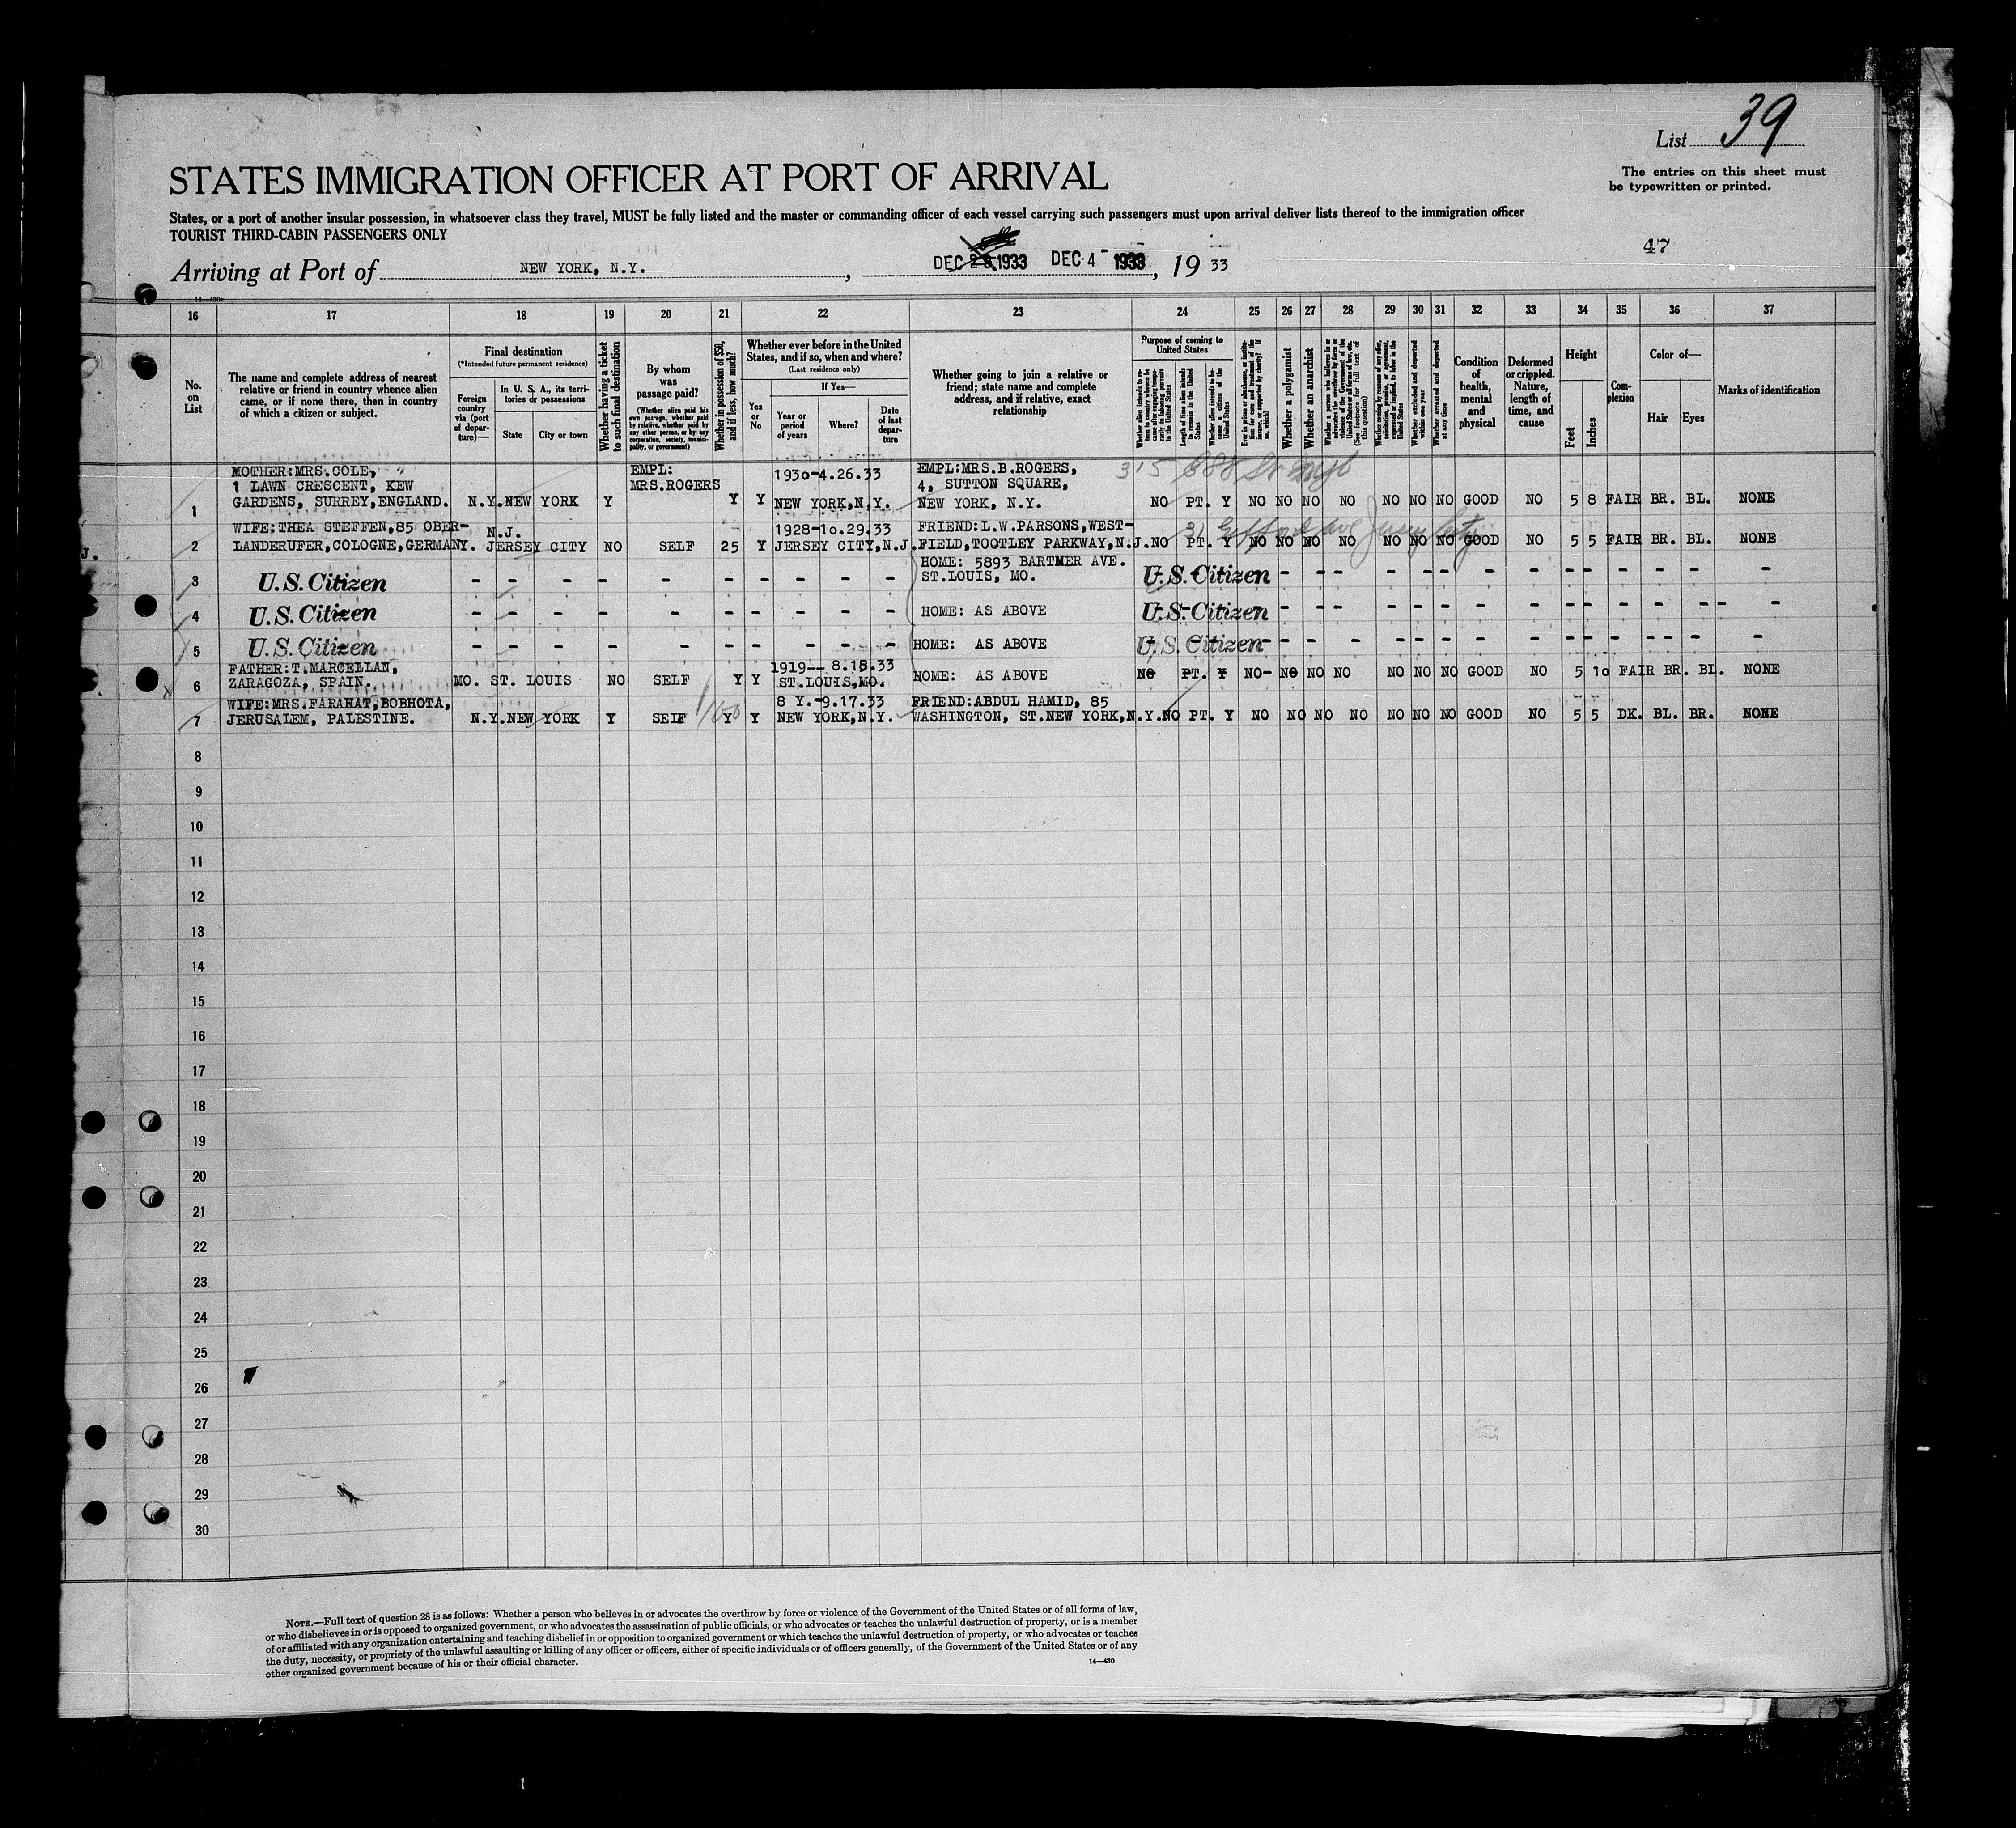 List 39
The entries on this sheet must
be typewritten or printed.
STATES IMMIGRATION OFFICER AT PORT OF ARRIVAL
States, or a port of another insular possession, in whatsoever class they travel, MUST be fully listed and the master or commanding officer of each vessel carrying such passengers must upon arrival deliver lists thereof to the immigration officer
TOURIST THIRD-CABIN PASSENGERS ONLY
47
Arriving at Port of NEW YORK, N.Y., DEC 1933 DEC 4 - 1933, 19 33
14—430
16 17 18 19 20 21 22 23 24 25 26 27 28 29 30 31 32 33 34 35 36 37
No.
on
List
The name and complete address of nearest
relative or friend in country whence alien
came, or if none there, then in country
of which a citizen or subject.
Final destination
(*Intended future permanent residence)
Foreign
country
via (port
of depar-
ture)—
In U. S. A., its terri-
tories or possessions
State
City or town
Whether having a ticket
to such final destination
By whom
was
passage paid?
(Whether alien paid his
own passage, whether paid
by relative, whether paid by
any other person, or by any
corporation, society, munici-
pality, or government)
Whether in possession of $50,
and if less, how much?
Whether ever before in the United
States, and if so, when and where?
(Last residence only)
Yes
or
No
If Yes—
Year or
period
of years
Where?
Date
of last
depar-
ture
Whether going to join a relative or
friend; state name and complete
address, and if relative, exact
relationship
Purpose of coming to
United States
Whether alien intends to re-
turn to country whence he
came after engaging tempo-
rarily in laboring pursuits
in the United States
Length of time alien intends
to remain in the United
States
Whether alien intends to be-
come a citizen of the
United States
Ever in prison or almshouse, or institu-
tion for care and treatment of the
insane, or supported by charity? If
so, which?
Whether a polygamist
Whether an anarchist
Whether a person who believes in or
advocates the overthrow by force or
violence of the Government of the
United States or all forms of law, etc.
(See footnote for full text of
this question)
Whether coming by reason of any offer,
solicitation, promise, or agreement,
expressed or implied, to labor in the
United States
Whether excluded and deported
within one year
Whether arrested and deported
at any time
Condition
of
health,
mental
and
physical
Deformed
or crippled.
Nature,
length of
time, and
cause
Height
Feet
Inches
Com-
plexion
Color of—
Hair
Eyes
Marks of identification
MOTHER:MRS.COLE, EMPL: 1930-4.26.33 EMPL:MRS.B.ROGERS, 315
1 LAWN CRESCENT, KEW MRS.ROGERS 4, SUTTON SQUARE,
1 GARDENS, SURREY,ENGLAND. N.Y.NEW YORK Y Y Y NEW YORK,N.Y. NEW YORK, N.Y. NO PT. Y NO NO NO NO NO NO NO GOOD NO 5 8 FAIR BR. BL. NONE
WIFE:THEA STEFFEN,85 OBER- N.J. 1928-10.29.33 FRIEND:L.W.PARSONS,WEST-
2 LANDERUFER,COLOGNE,GERMANY. JERSEY CITY NO SELF 25 Y JERSEY CITY,N.J. FIELD,TOOTLEY PARKWAY,N.J. NO PT. Y NO NO NO NO NO NO NO GOOD NO 5 5 FAIR BR. BL. NONE
J.
HOME: 5893 BARTMER AVE.
3 U.S. Citizen - - - - - - - - - ST.LOUIS, MO. U.S. Citizen - - - - - - - - - - - - - -
4 U.S. Citizen - - - - - - - - - HOME: AS ABOVE U.S. Citizen - - - - - - - - - - - - - -
5 U.S. Citizen - - - - - - - - HOME: AS ABOVE U.S. Citizen - - - - - - - - - - - - - -
FATHER:T.MARCELLAN, 1919-- 8.18.33
6 ZARAGOZA, SPAIN. MO. ST. LOUIS NO SELF Y Y ST.LOUIS,MO. HOME: AS ABOVE NO PT. Y NO- NO NO NO NO NO NO GOOD NO 5 10 FAIR BR. BL. NONE
WIFE:MRS.FARAHAT,BOBHOTA, 8 Y.-9.17.33 FRIEND:ABDUL HAMID, 85
7 JERUSALEM, PALESTINE. N.Y.NEW YORK Y SELF Y Y NEW YORK,N.Y. WASHINGTON, ST.NEW YORK,N.Y. NO PT. Y NO NO NO NO NO NO NO GOOD NO 5 5 DK. BL. BR. NONE
8
9
10
11
12
13
14
15
16
17
18
19
20
21
22
23
24
25
26
27
28
29
30
NOTE.—Full text of question 28 is as follows: Whether a person who believes in or advocates the overthrow by force or violence of the Government of the United States or of all forms of law,
or who disbelieves in or is opposed to organized government, or who advocates the assassination of public officials, or who advocates or teaches the unlawful destruction of property, or is a member
of or affiliated with any organization entertaining and teaching disbelief in or opposition to organized government or which teaches the unlawful destruction of property, or who advocates or teaches
the duty, necessity, or propriety of the unlawful assaulting or killing of any officer or officers, either of specific individuals or of officers generally, of the Government of the United States or of any
other organized government because of his or their official character.
14—430